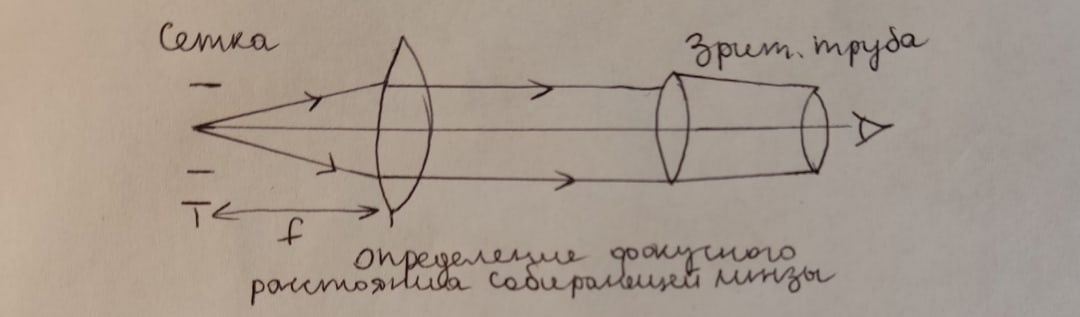 Сетка
Зрит. труба
f
определение фокусного
расстояния собирающей линзы